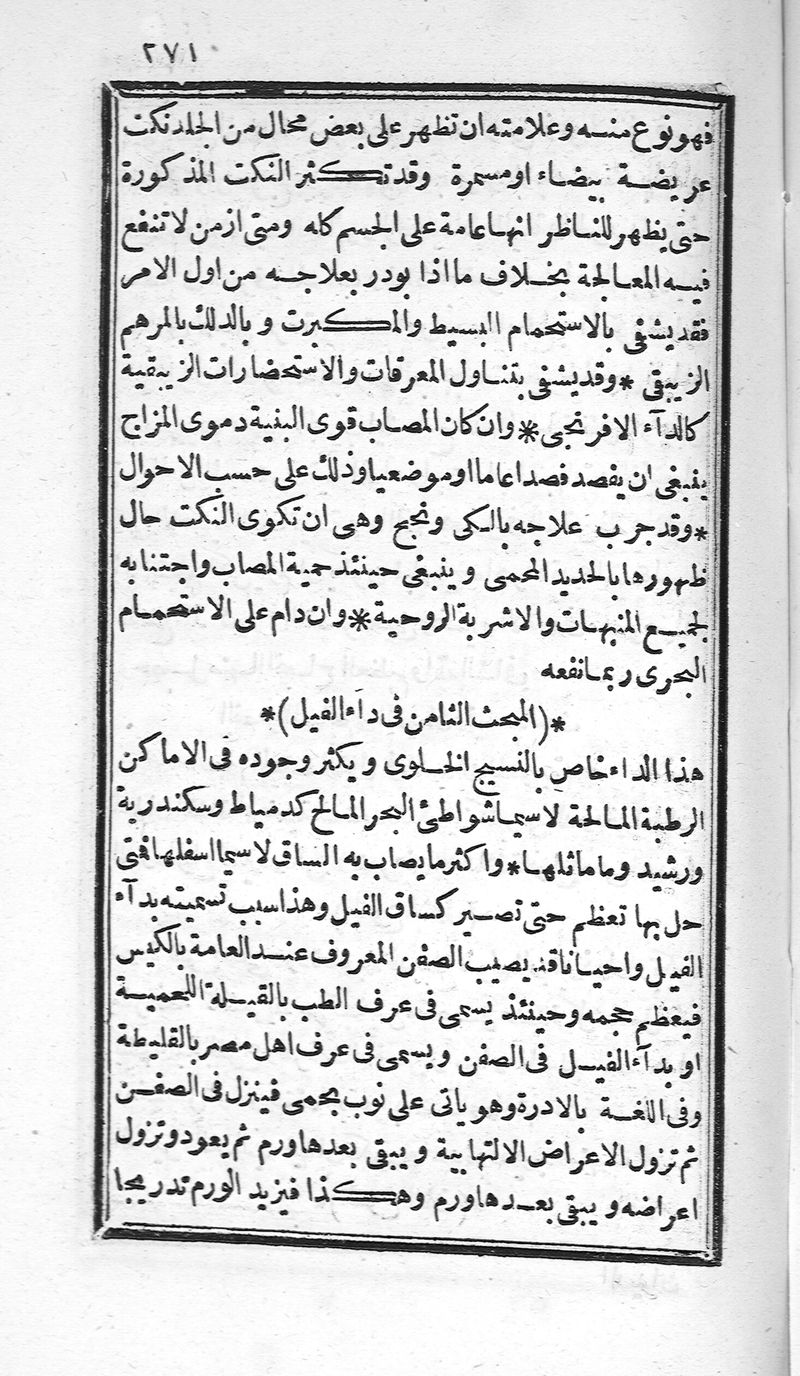 ٢٧١
فهو نوع منه وعلامته ان تظهر على بعض محال من الجلد نكت
عريضة بيضاء او مسمرة وقد تكثر النكت المذكورة
حتى يظهر للناظر انها عامة على الجسم كله ومتى ازمن لا تنفع
فيه المعالجة بخلاف ما اذا بودر بعلاجه من اول الامر
فقد يشفى بالاستحمام البسيط والمكبرت وبالدلك بالمرهم
الزيبقى * وقد يشفى بتناول المعرقات والاستحضارات الزيبقية
كالدآء الافرنجى * وان كان المصاب قوى البنية دموى المزاج
ينبغى ان يفصد فصدا عاما او موضعيا وذلك على حسب الاحوال
* وقد جرب علاجه بالكى ونجح وهى ان تكوى النكت حال
ظهورها بالحديد المحمى وينبغى حينئذ حمية المصاب واجتنابه
لجميع المنبهات والاشربة الروحية * وان دام على الاستحمام
البحرى ربما نفعه
* (المبحث الثامن فى دآء الفيل) *
هذا الداء خاص بالنسيج الخلوى ويكثر وجوده فى الاماكن
الرطبة المالحة لاسيما شواطئ البحر المالح كدمياط وسكندرية
ورشيد وما ماثلها * واكثر ما يصاب به الساق لاسيما اسفلها فمتى
حل بها تعظم حتى تصير كساق الفيل وهذا سبب تسميته بدآء
الفيل واحيانا قد يصيب الصفن المعروف عند العامة بالكيس
فيعظم حجمه وحينئذ يسمى فى عرف الطب بالقيلة اللحمية
او بدآء الفيل فى الصفن ويسمى فى عرف اهل مصر بالقليطة
وفى اللغة بالادرة وهو ياتى على نوب بحمى فينزل فى الصفن
ثم تزول الاعراض الالتهابية ويبقى بعدها ورم ثم يعود وتزول
اعراضه ويبقى بعدها ورم وهكذا فيزيد الورم تدريجا